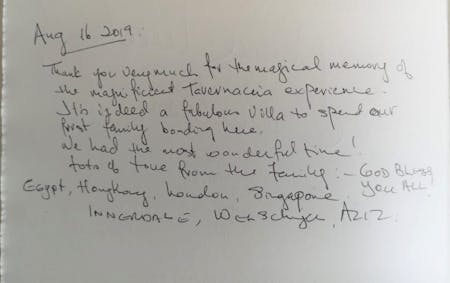 Aug 16 2019.
Thank you very much for the magical memory of
the magnificent Tavernaccia experience.
It is indeed a fabulous Villa to spend our
first family bonding here.
We had the most wonderful time!
tots of love from the family :- GOD BLESS
Egypt, Hongkong, London, Singapore. YOU ALL!
INNERDALE, , AZIZ.